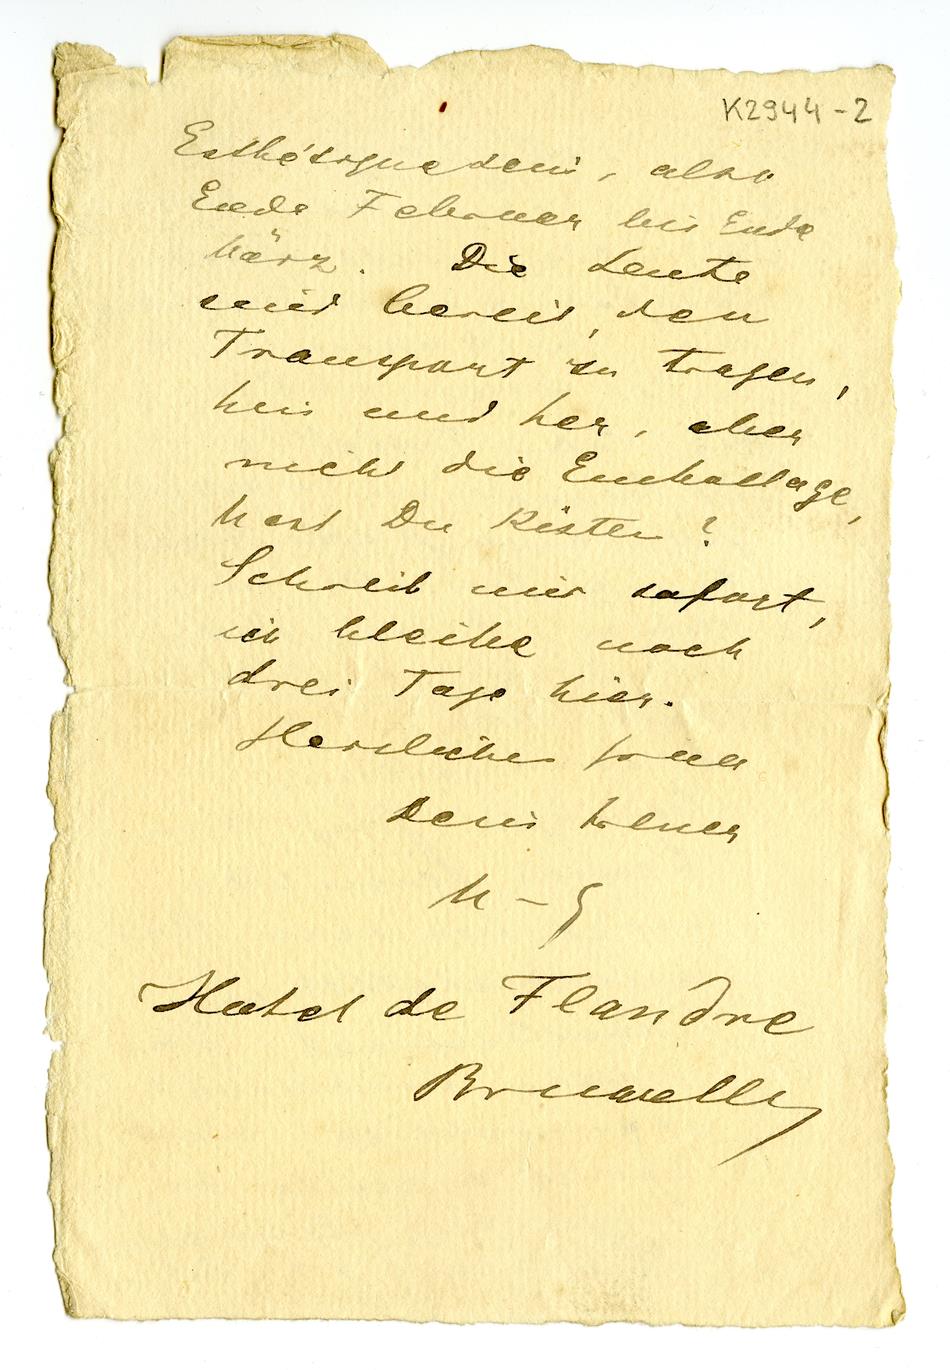 K2944-2
Esthétique sein, also
Ende Februar bis Ende
März. Die Leute
sind bereit, den
Transport zu tragen,
hin und her, aber
nicht die Emballage,
hast Du Kisten?
Schreib mir sofort,
ich bleibe noch
drei Tage hier.
Herzlichen
Dein
M-G
Hotel de Flandre
Bruxelles